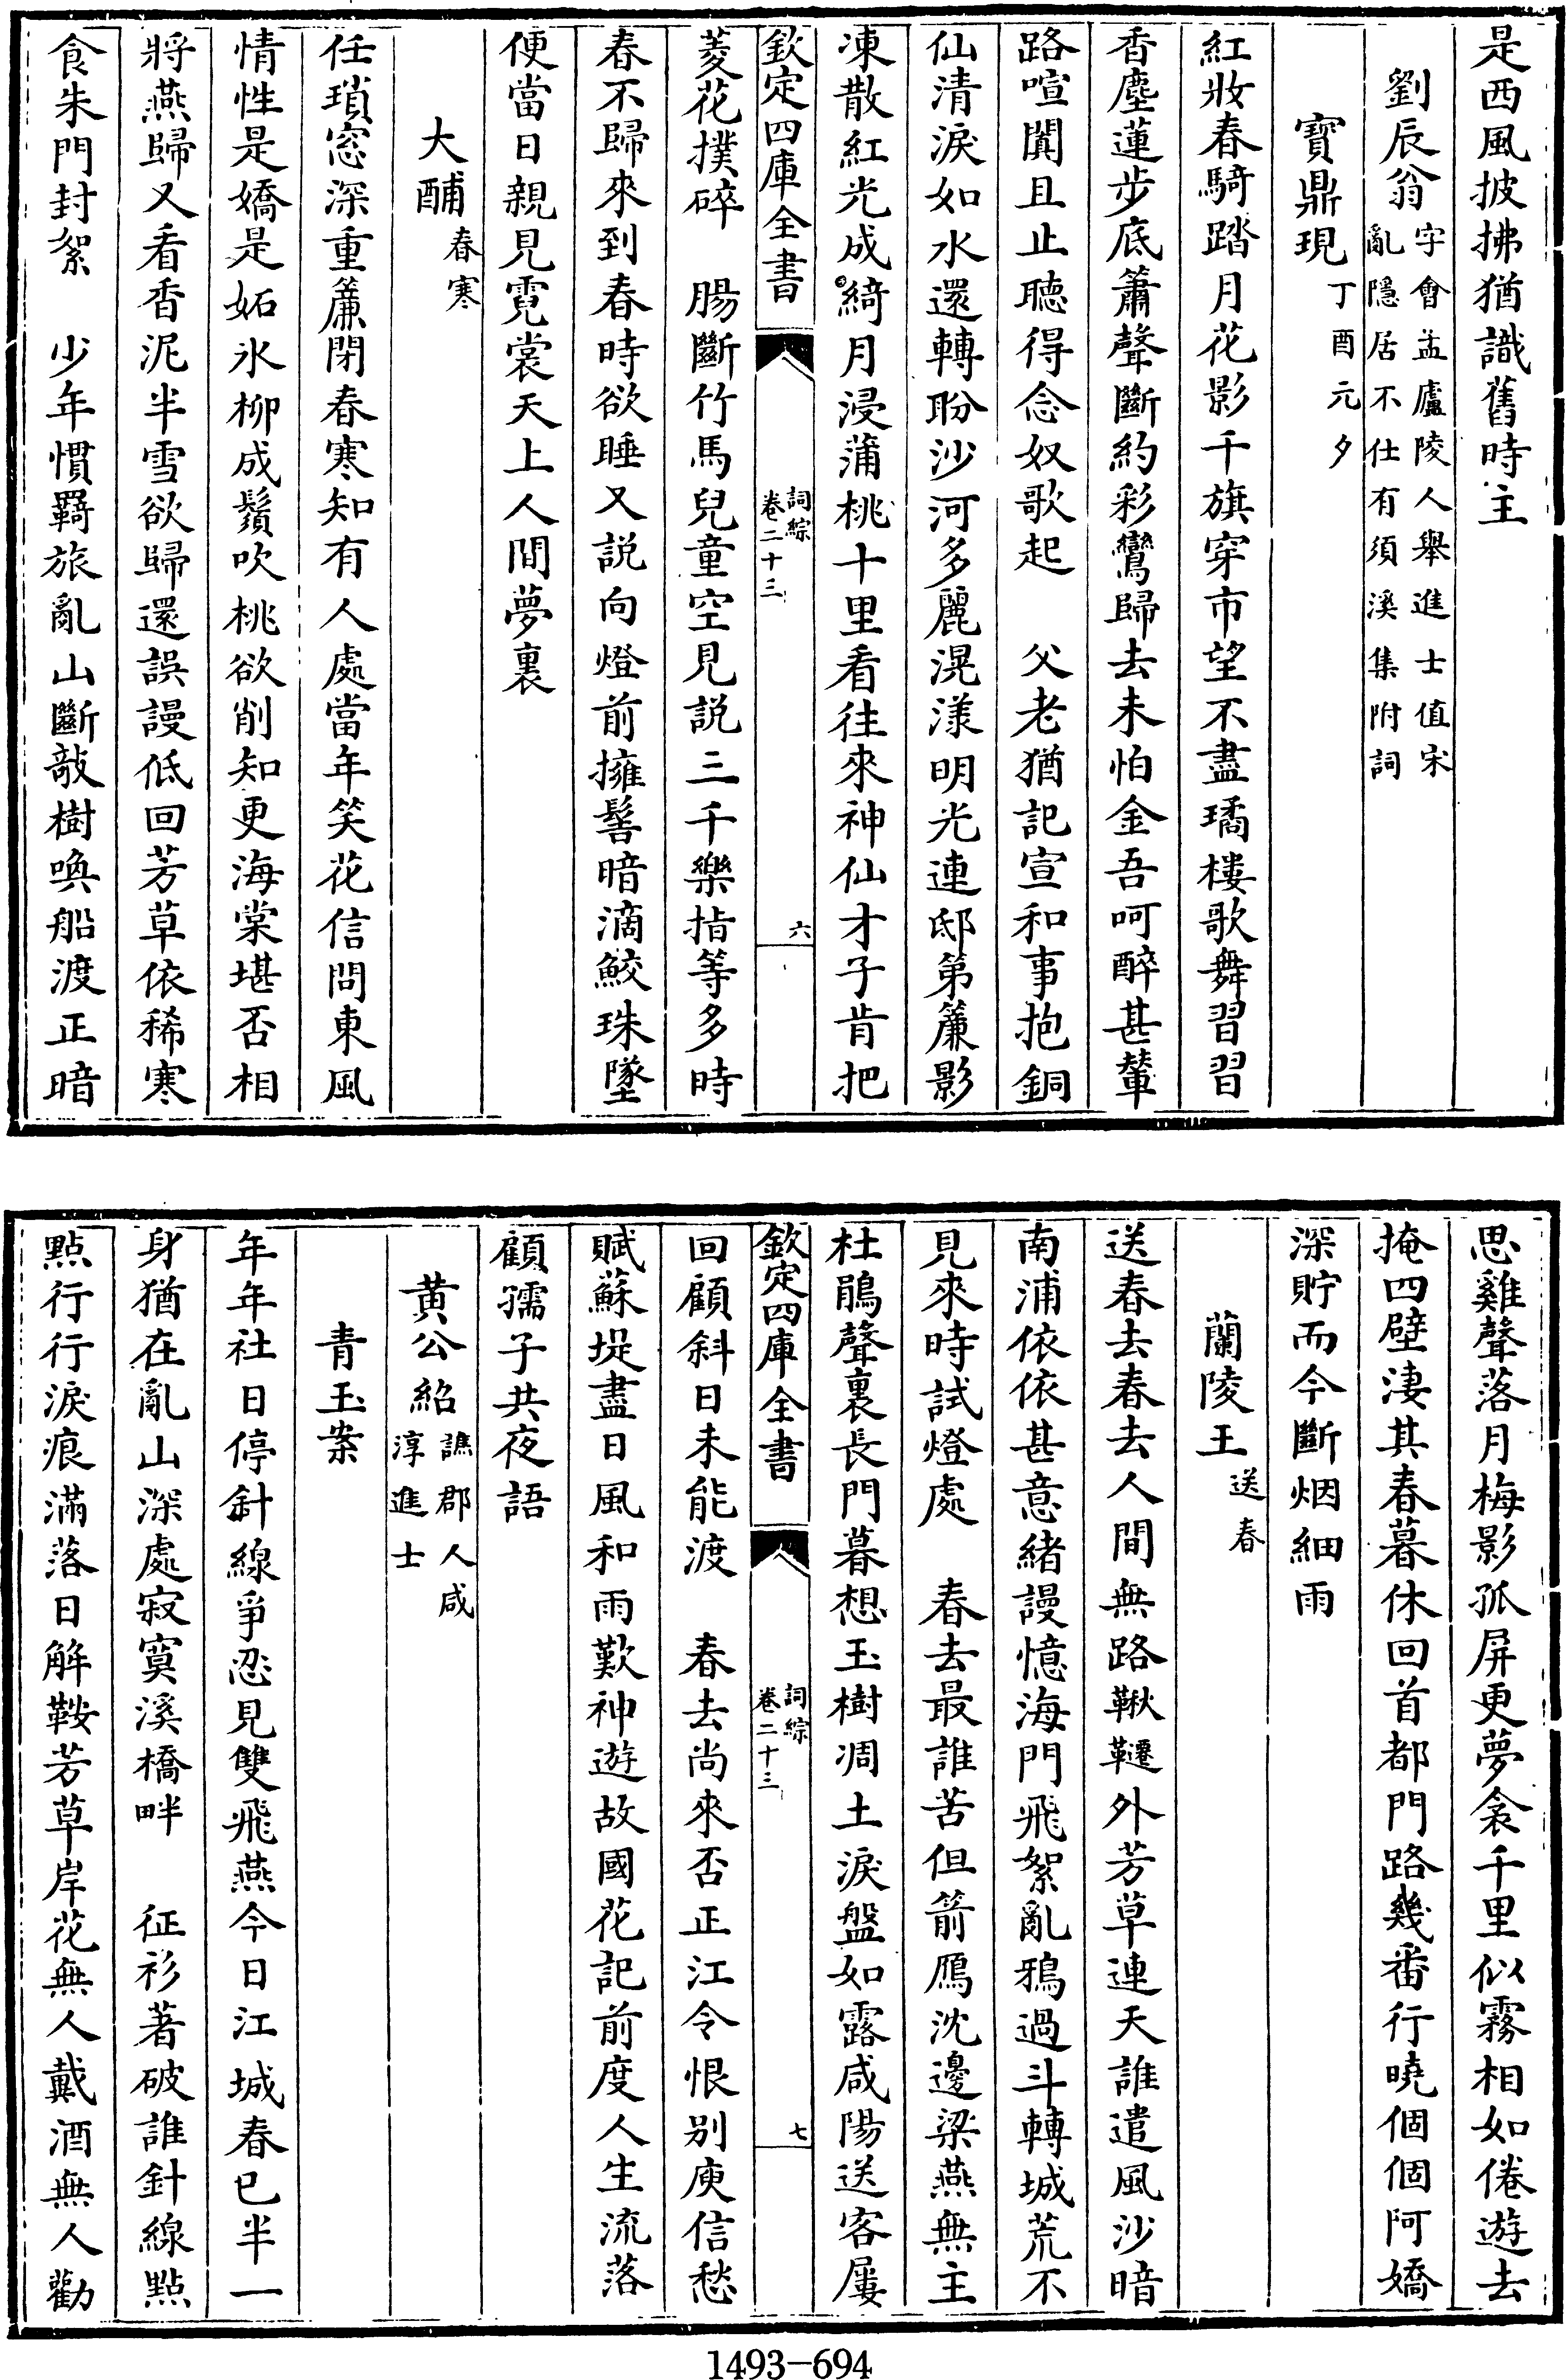 是西風披拂猶識舊時主
劉辰翁字㑹孟廬陵人舉進士值宋亂隱居不仕有須溪集附詞
寳鼎現丁酉元夕
紅妝春騎踏月花影千旗穿市望不盡璚樓歌舞習習
香塵蓮步底簫聲斷約彩鸞歸去未怕金吾呵醉甚輦
路喧闐且止聴得念奴歌起　父老猶記宣和事抱銅
仙清淚如水還轉盼沙河多麗滉漾明光連邸第簾影
凍散紅光成綺月浸蒲桃十里看往來神仙才子肯把
欽定四庫全書
詞綜
卷二十三
六
菱花撲碎　腸斷竹馬兒童空見説三千樂指等多時
春不歸來到春時欲睡又説向燈前擁髻暗滴鮫珠墜
便當日親見霓裳天上人間夢裏
大酺春寒
任瑣窓深重簾閉春寒知有人處當年笑花信問東風
情性是嬌是妬氷柳成鬚吹桃欲削知更海棠堪否相
將燕歸又看香泥半雪欲歸還誤謾低回芳草依稀寒
食朱門封絮　少年慣羇旅亂山斷敧樹喚船渡正暗
思雞聲落月梅影孤屏更夢衾千里似霧相如倦遊去
掩四壁淒其春暮休回首都門路幾番行曉個個阿嬌
深貯而今斷烟細雨
蘭陵王送春
送春去春去人間無路鞦韆外芳草連天誰遣風沙暗
南浦依依甚意緒謾憶海門飛絮亂鴉過斗轉城荒不
見來時試燈處　春去最誰苦但箭鴈沈邊梁燕無主
杜鵑聲裏長門暮想玉樹凋土淚盤如露咸陽送客屢
欽定四庫全書
詞綜
卷二十三
七
回顧斜日未能渡　春去尚來否正江令恨别庾信愁
賦蘇堤盡日風和雨歎神遊故國花記前度人生流落
顧孺子共夜語
黄公紹譙郡人咸淳進士
青玉案
年年社日停針線爭忍見雙飛燕今日江城春已半一
身猶在亂山深處寂寞溪橋畔　征衫著破誰針線㸃
㸃行行淚痕滿落日解鞍芳草岸花無人戴酒無人勸
1493-694